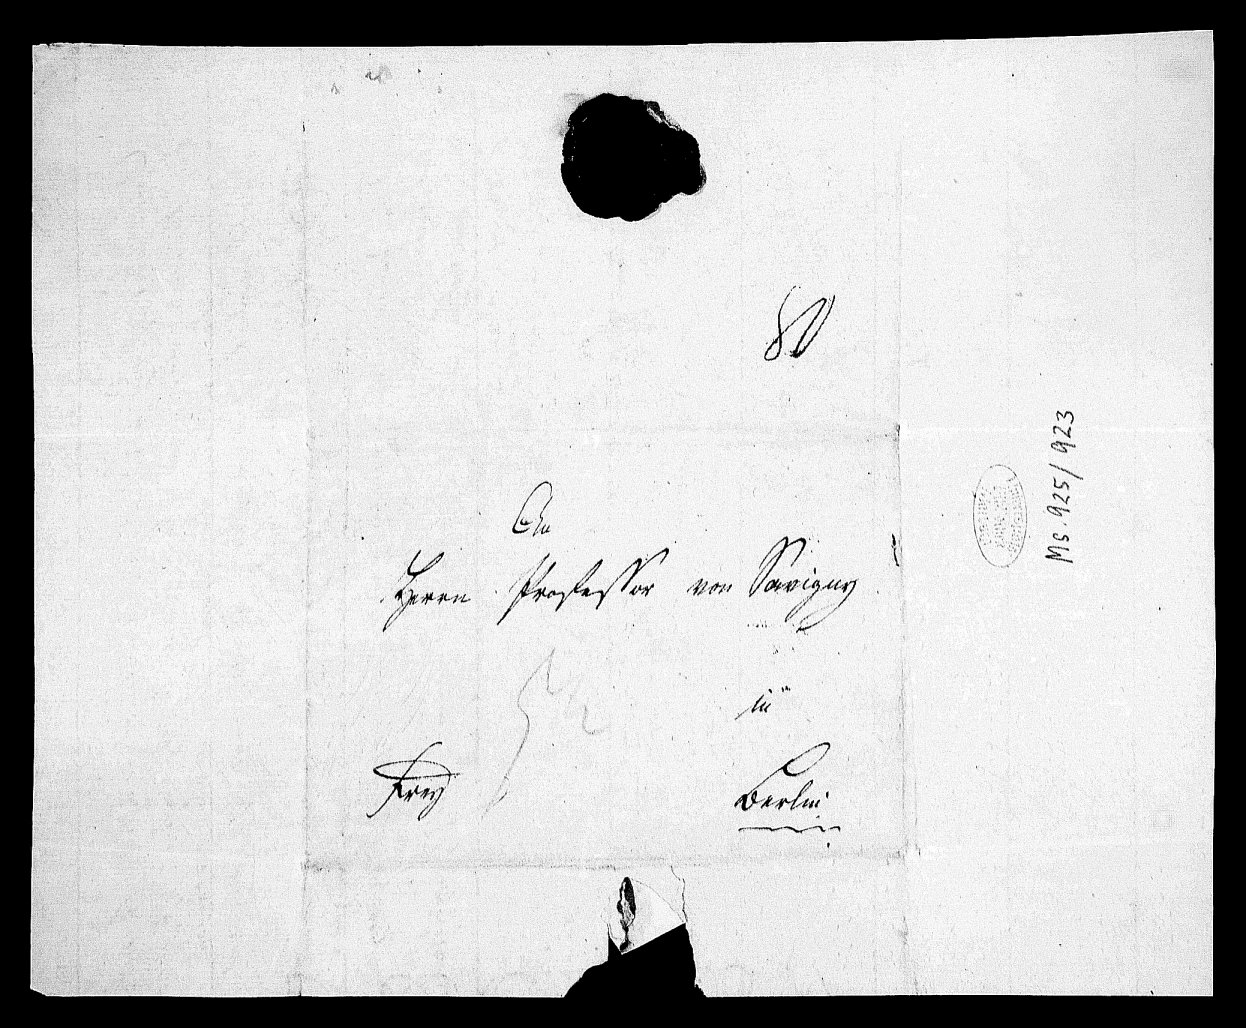 An
Herrn Professor von Savigny
in
Berlin
Frey
Ms. 925/923